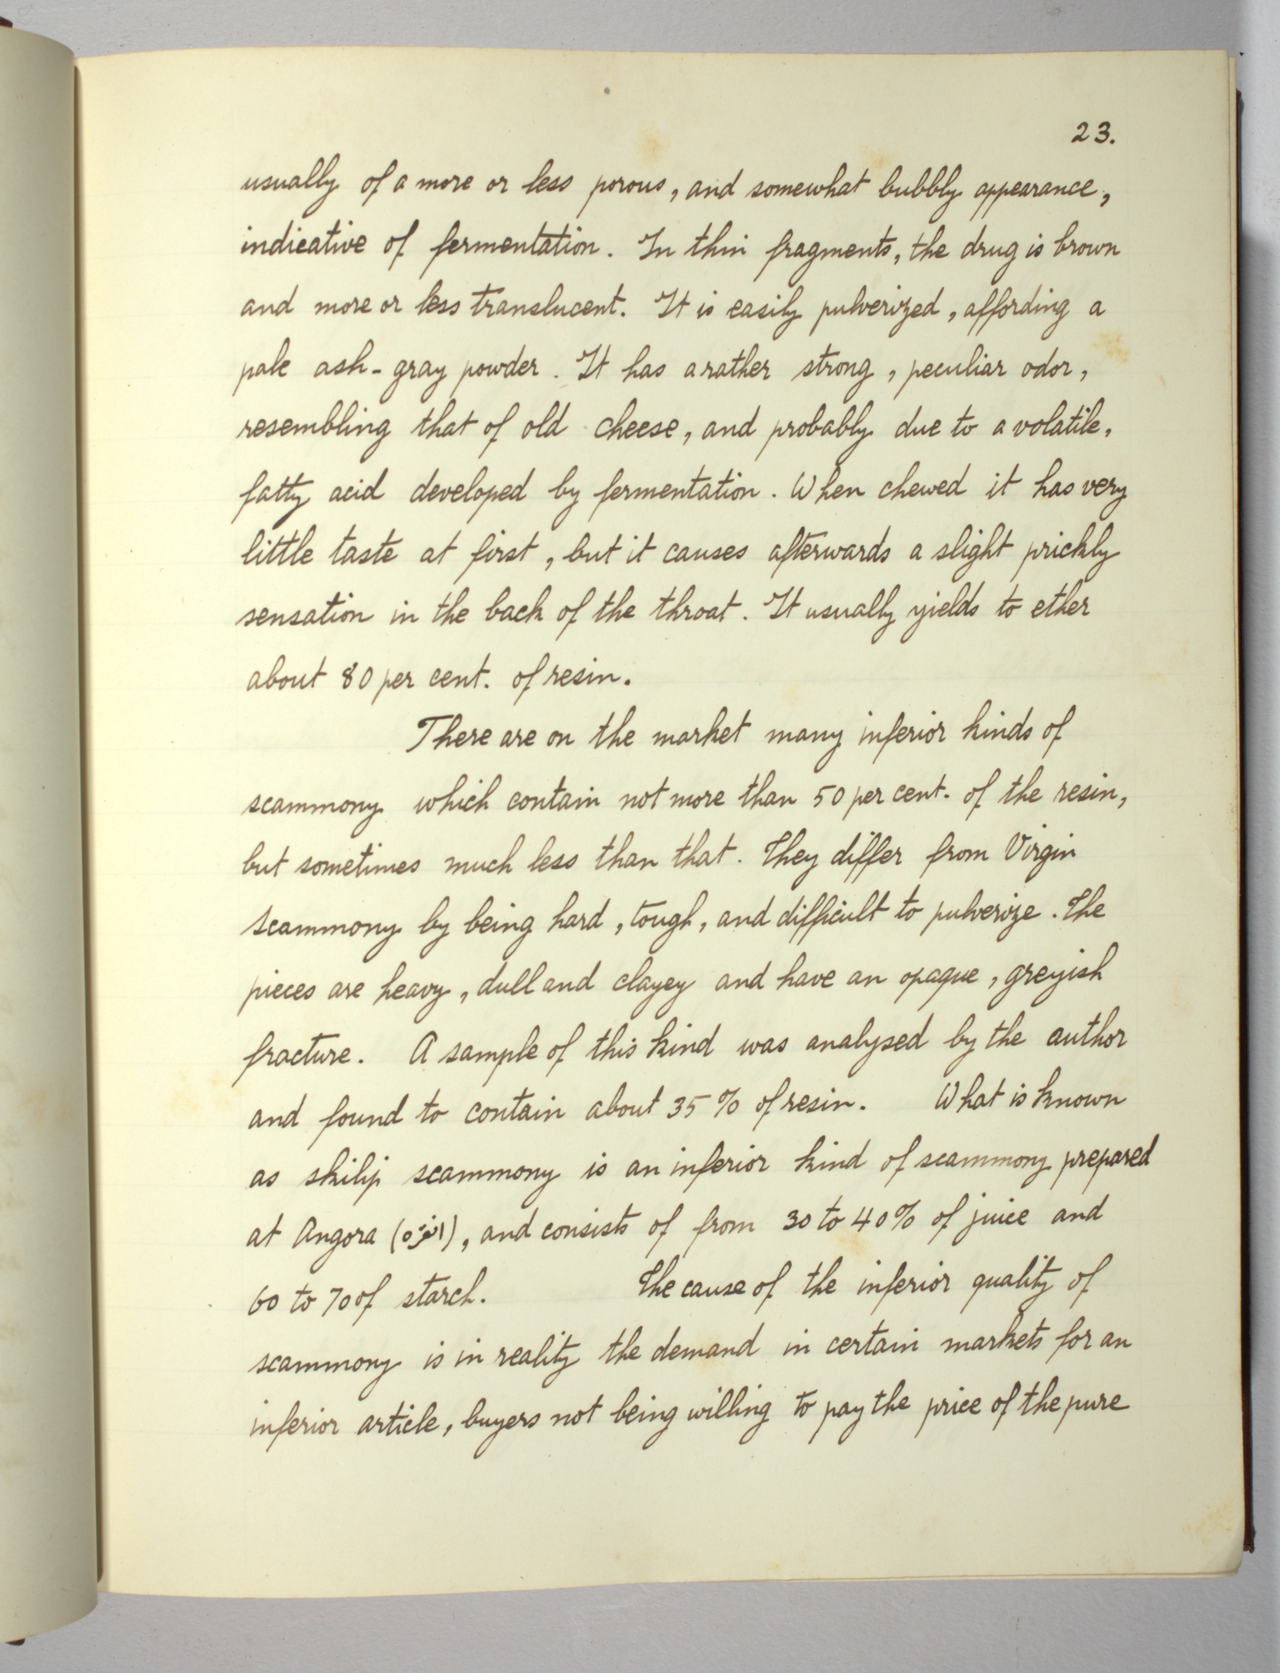 23.
usually of a more or less porous, and somewhat bubbly appearance,
indicative of fermentation. In thin fragments, the drug is brown
and more or less translucent. It is easily pulverized, affording a
pale ash-gray powder. It has a rather strong, peculiar odor,
resembling that of old cheese, and probably due to a volatile,
fatty acid developed by fermentation. When chewed it has very
little taste at first, but it causes afterwards a slight prickly
sensation in the back of the throat. It usually yields to ether
about 80 per cent. of resin.
There are on the market many inferior kinds of
scammony which contain not more than 50 per cent. of the resin,
but sometimes much less than that. They differ from Virgin
scammony by being hard, tough, and difficult to pulverize. The
pieces are heavy, dull and clayey and have an opaque, greyish
fracture. A sample of this kind was analysed by the author
and found to contain about 35% of resin. What is known
as skilip scammony is an inferior kind of scammony prepared
at Angora (انقره), and consists of from 30 to 40% of juice and
60 to 70 of starch. The cause of the inferior quality of
scammony is in reality the demand in certain markets for an
inferior article, buyers not being willing to pay the price of the pure